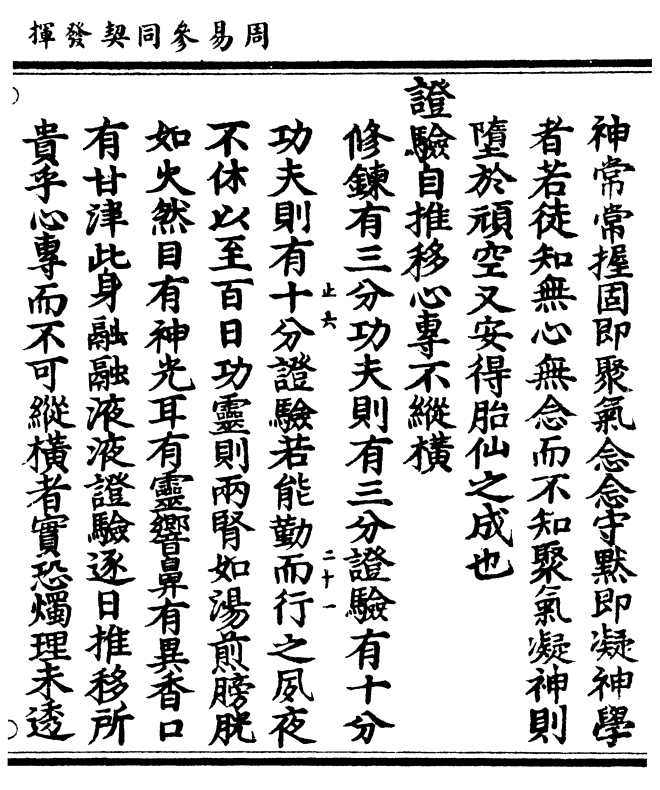 周易參同契發揮
神常常握固即聚氣念念守默即凝神學
者若徒知無心無念而不知聚氣凝神則
墮於頑空又安得胎仙之成也
證驗自推移心專不縱橫
修鍊有三分功夫則有三分證驗有十分
止六
二十一
功夫則有十分證驗若能勤而行之夙夜
不休以至百日功靈則兩腎如湯煎膀胱
如火然目有神光耳有靈響鼻有異香口
有甘津此身融融液液證驗逐日推移所
貴乎心專而不可縱橫者實恐燭理未透